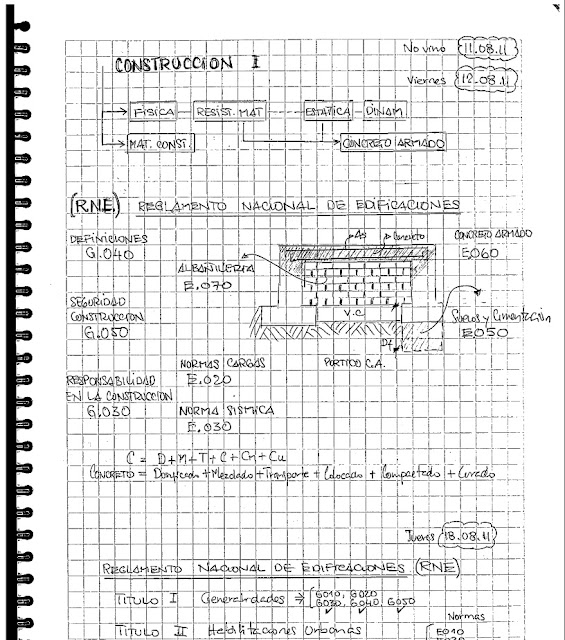 No vino 11.08.11
CONSTRUCCION I
Viernes 12.08.11
FISICA RESIST. MAT ESTATICA DINAM
MAT. CONST. CONCRETO ARMADO
(R.N.E.) REGLAMENTO NACIONAL DE EDIFICACIONES
DEFINICIONES
G.040
As Concreto
CONCRETO ARMADO
E060
ALBAÑILERIA
E.070
SEGURIDAD
CONSTRUCCION
G.050
V.C.
Suelos y Cimentación
E050
Df
NORMAS CARGAS
E.020
PORTICO C.A.
RESPONSABILIDAD
EN LA CONSTRUCCION
G.030
NORMA SISMICA
E.030
C = D+M+T+C+Cn+Cu
CONCRETO = Dosificación + Mezclado + Transporte + Colocado + Compactado + Curado
Jueves 18.08.11
REGLAMENTO NACIONAL DE EDIFICACIONES (RNE)
TITULO I Generalidades → G010, G020
G030, G040, G050
Normas
TITULO II Habilitaciones Urbanas E010